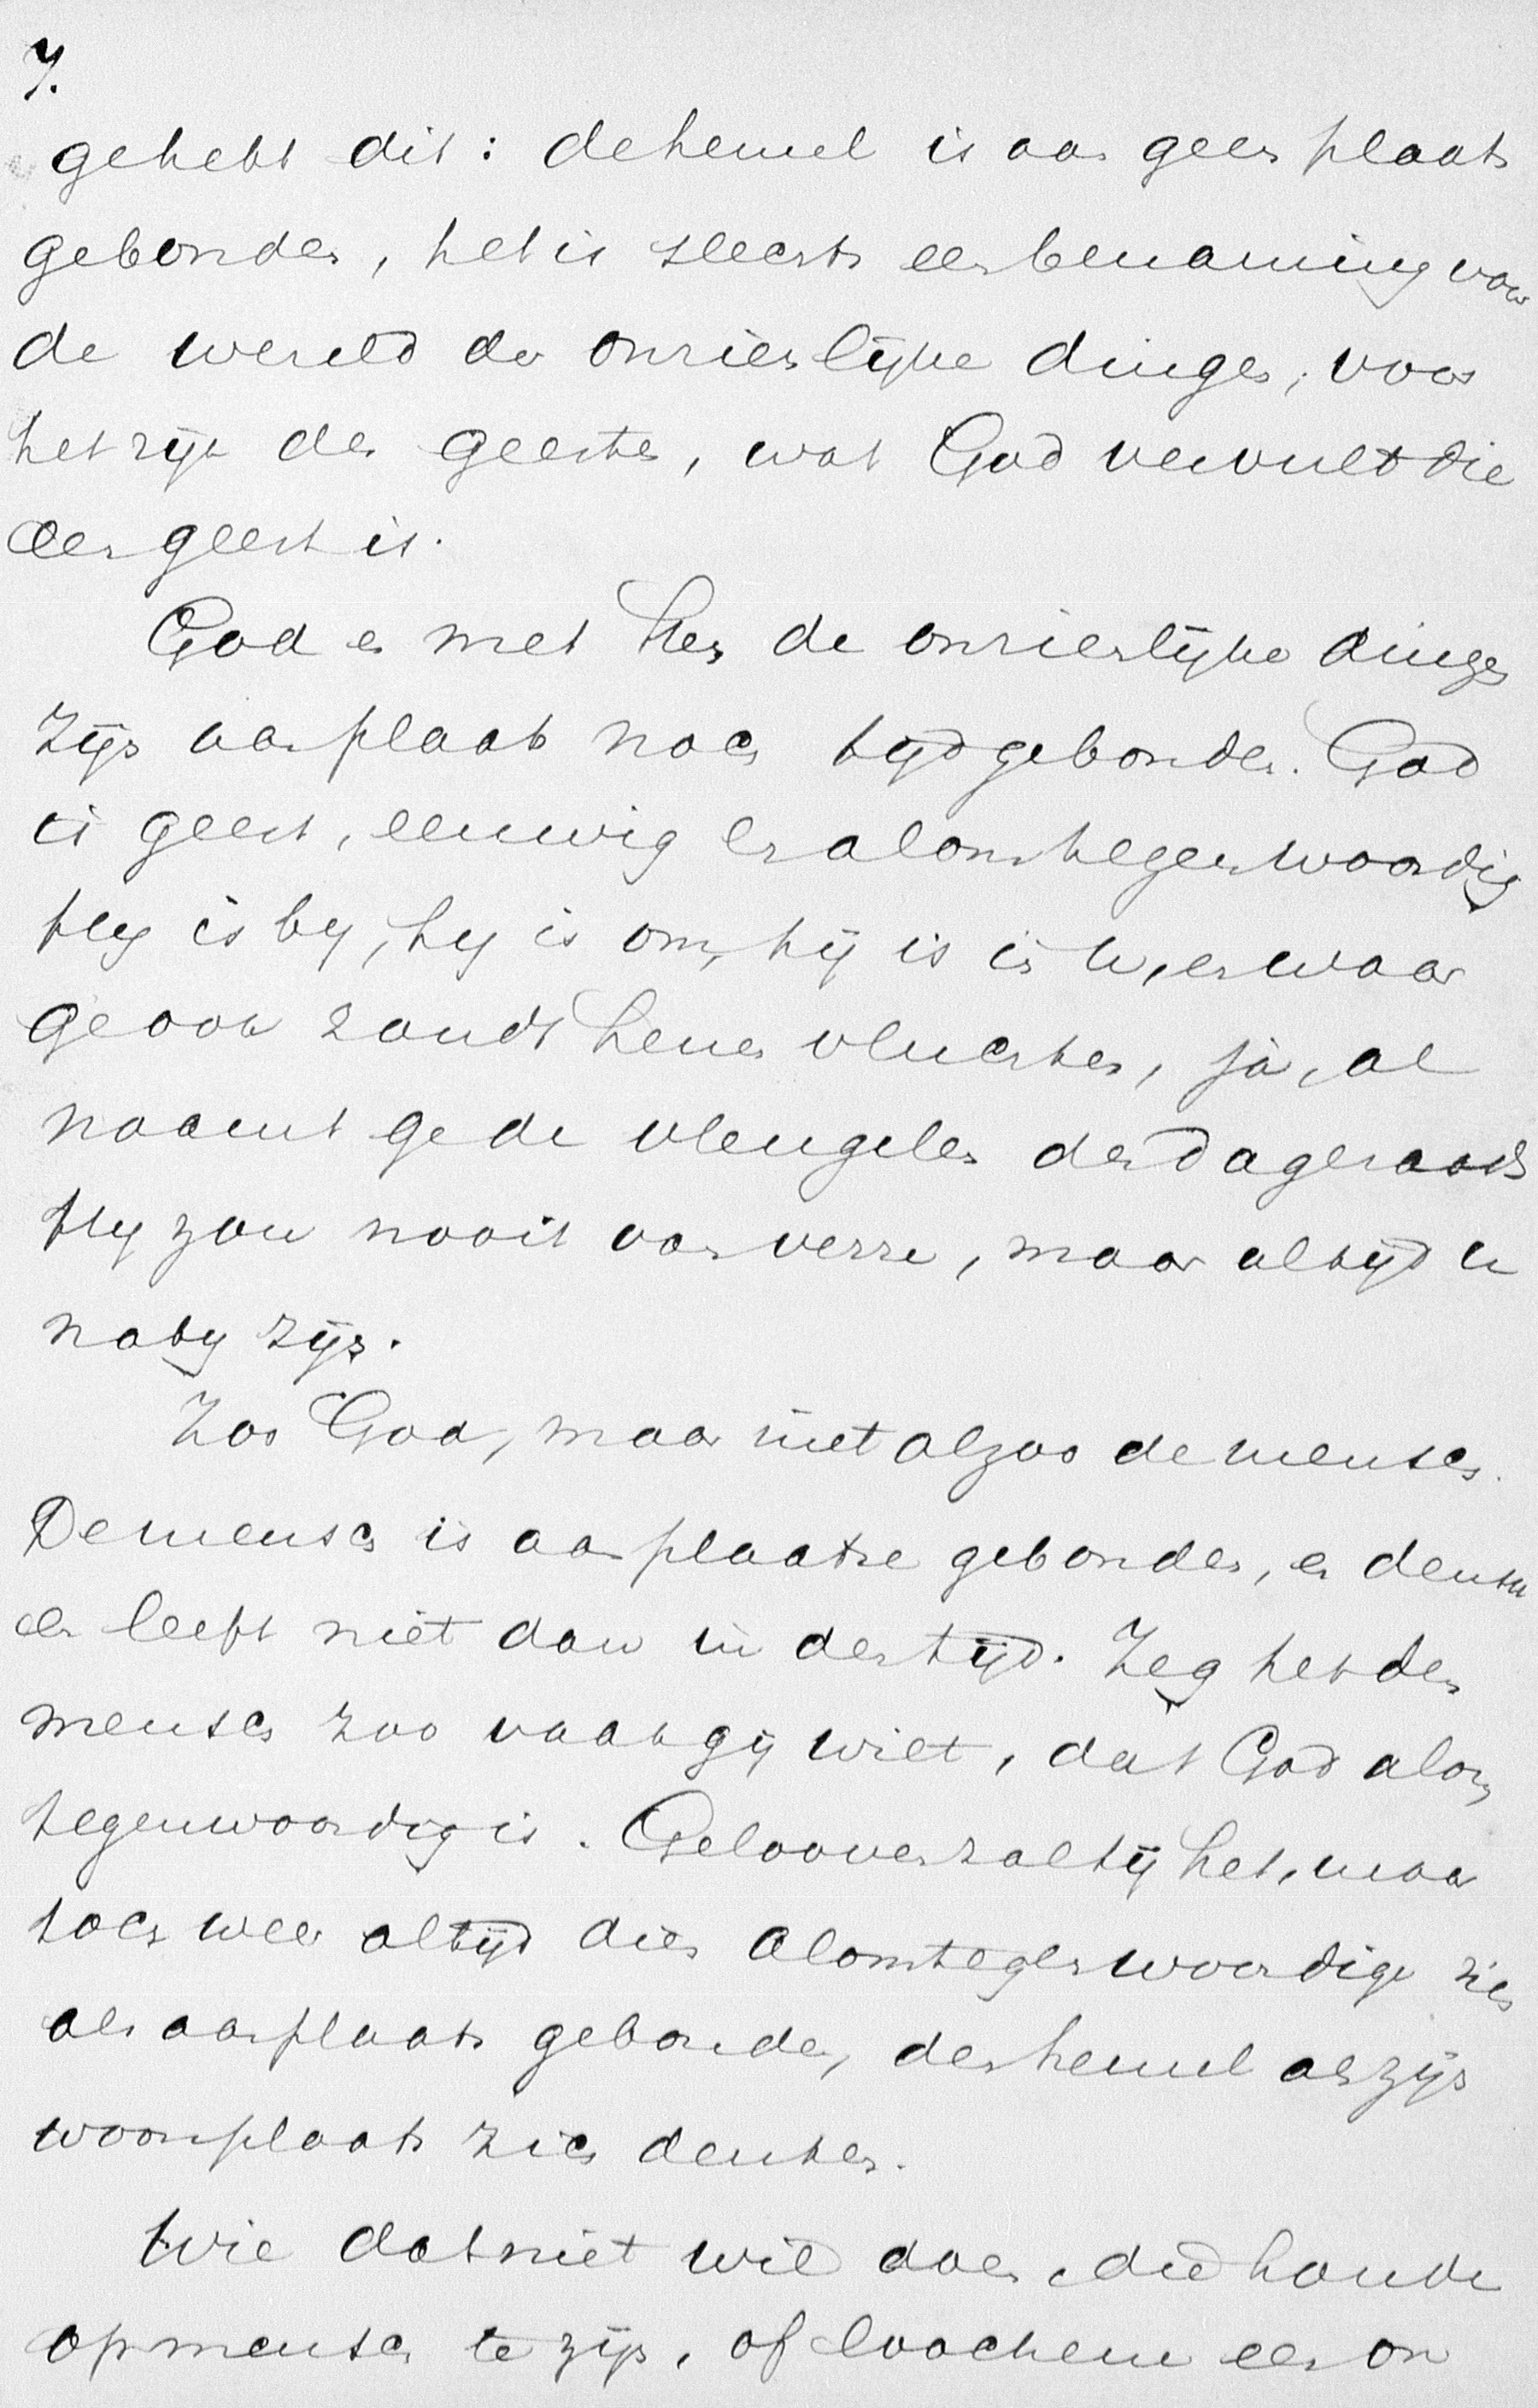 7.
ge hebt dit: de hemel is aan geen plaats
gebonden, het is slechts een benaming voor
de wereld der onzienlijke dingen, voor
het rijk der geesten, wat God vervult die
een geest is.
God en met hem de onzienlijke dingen
zijn aan plaats noch tijd gebonden. God
is geest, eeuwig en alomtegenwoordig
Hij is bij, hij is om, hij is in U, en waar
ge ook zoudt henen vluchten, ja, al
naamt ge de vleugelen des dageraads
Hij zou nooit van verre, maar altijd u
nabij zijn.
Zoo God, maar niet alzoo de mensch.
De mensch is aan plaatse gebonden, en denkt
en leeft niet dan in den tijd. Zeg het den
mensch zoo vaak gij wilt, dat God alom
tegenwoordig is. Gelooven zal hij het, maar
toch weer altijd dien Alomtegenwoordige zich
als aan plaats gebonden, den hemel als zijn
woonplaats zich denken.
Wie dat niet wil doen, die houde
op mensch te zijn, of loochene een on